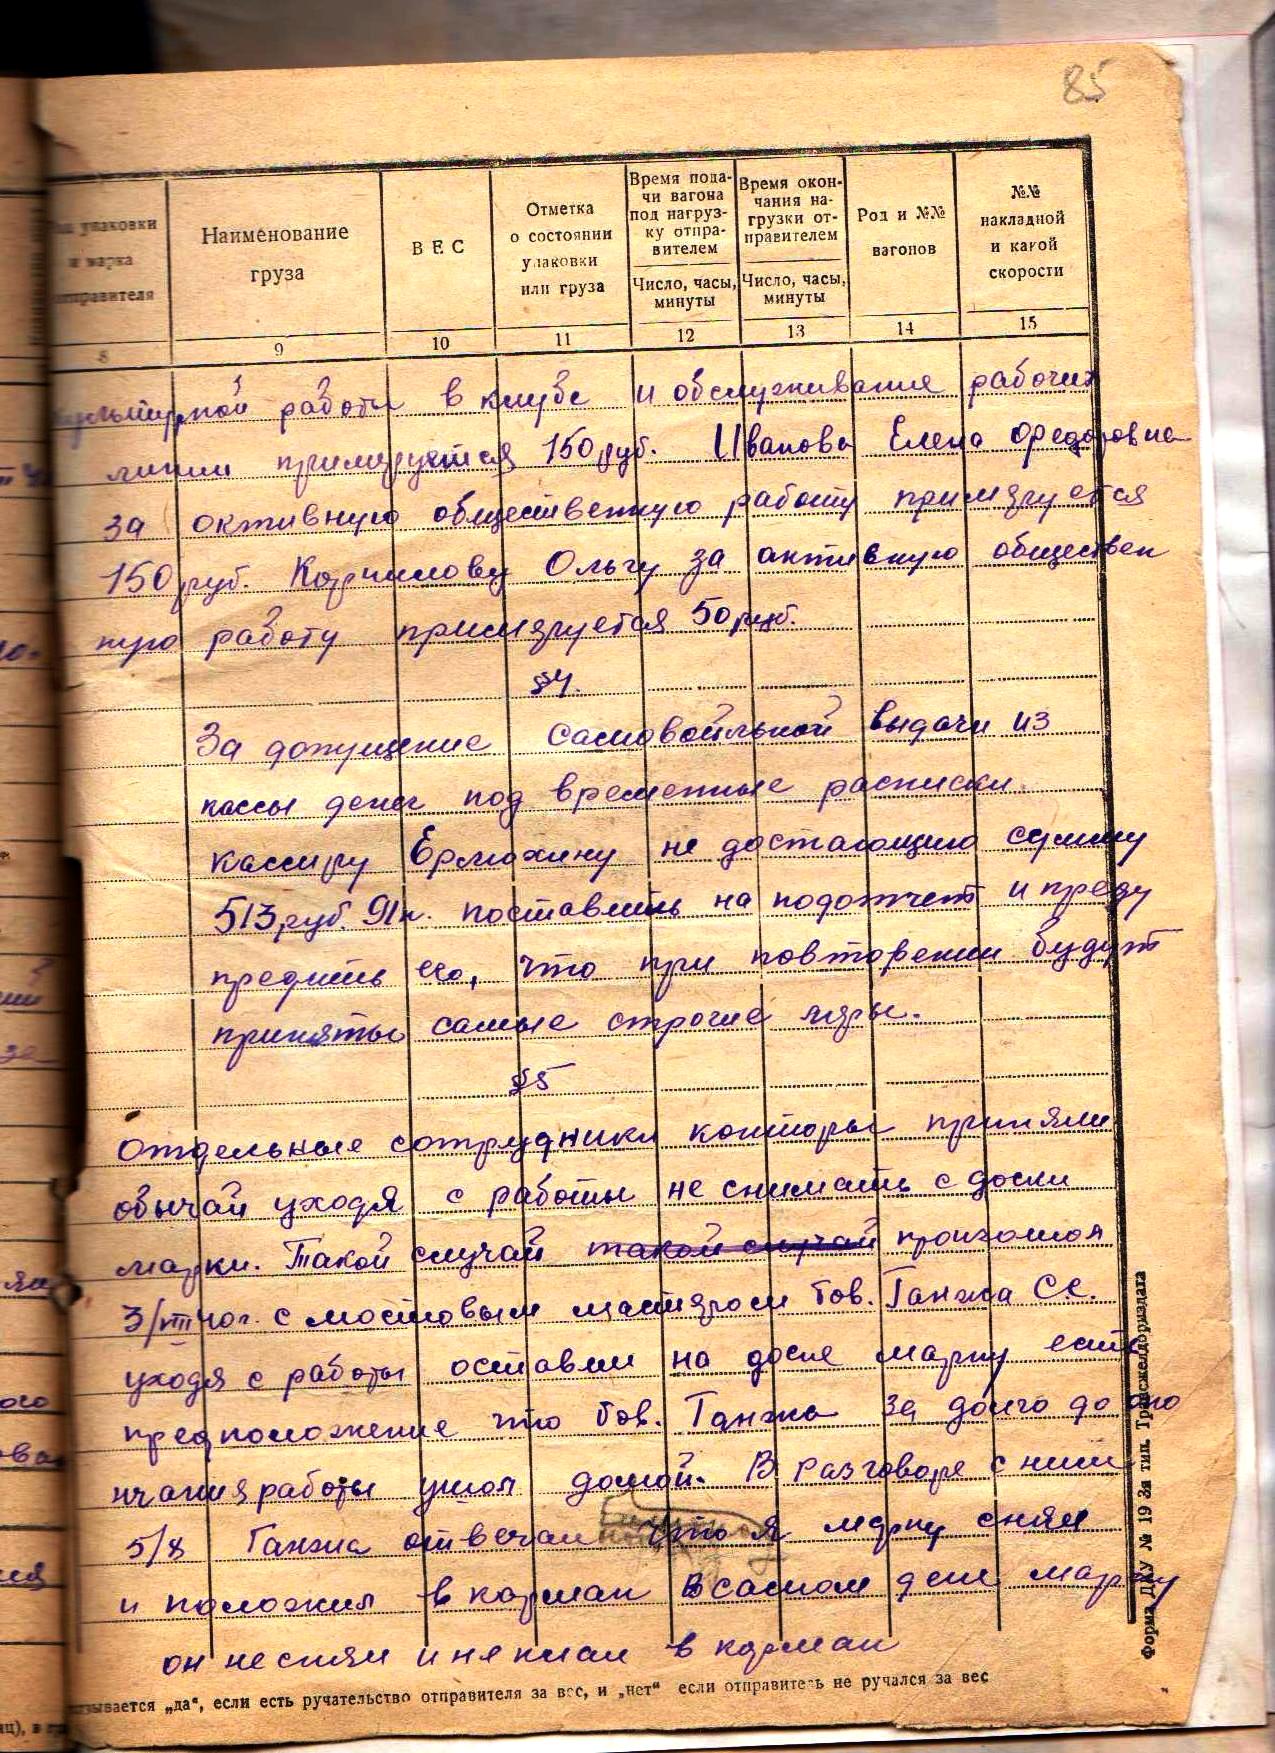 85
упаковки
и марка
отправителя
Наименование
груза
ВЕС
Отметка
о состоянии
упаковки
или груза
Время пода-
чи вагона
под нагруз-
ку отпра-
вителем
Число, часы,
минуты
Время окон-
чания на-
грузки от-
правителем
Число, часы,
минуты
Род и №№
вагонов
№№
накладной
и какой
скорости
8 9 10 11 12 13 14 15
работы в клубе и обслуживание рабочих
линии примеруется 150 руб. Иванова Елена Фредоровна
за активную общественную работу примяруется
150 руб. Корчилову Ольгу за активную обществен
ную работу примяруется 50 руб.
§4.
За допущение самовойльной выдачи из
кассы денег под временные расписки
кассиру Ермохину не достающию сумму
513 руб. 91к. поставить на подотчет и преду
предить его, что при повторении будут
приняты самые строгие мяры.
§5
Отдельные сотрудники конторы приняли
обычай уходя с работы не снимать с доски
марки. Такой случай такой случай произошол
3/VIII 40г. с мостовым мастяром тов. Ганжа С.С.
уходя с работы оставил на доске марку есть
предположение что тов. Ганжа за долго до око
нчания работы ушол домой. В разговоре с ним
5/8 Ганжа отвечал что я марку снял
и положил в карман В самом деле марку
он не снял и ня клал в карман
зывается „да“, если есть ручательство отправителя за вес, и „нет“ если отправитель не ручался за вес
Форма ДКУ № 19 3я тип. Трансжелдориздата